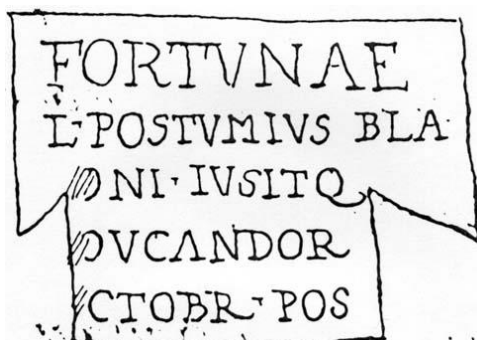 FORTVNAE
L·POSTVMIVS BLA
NI·IVSITQ
VCANDOR
CTOBR·POS